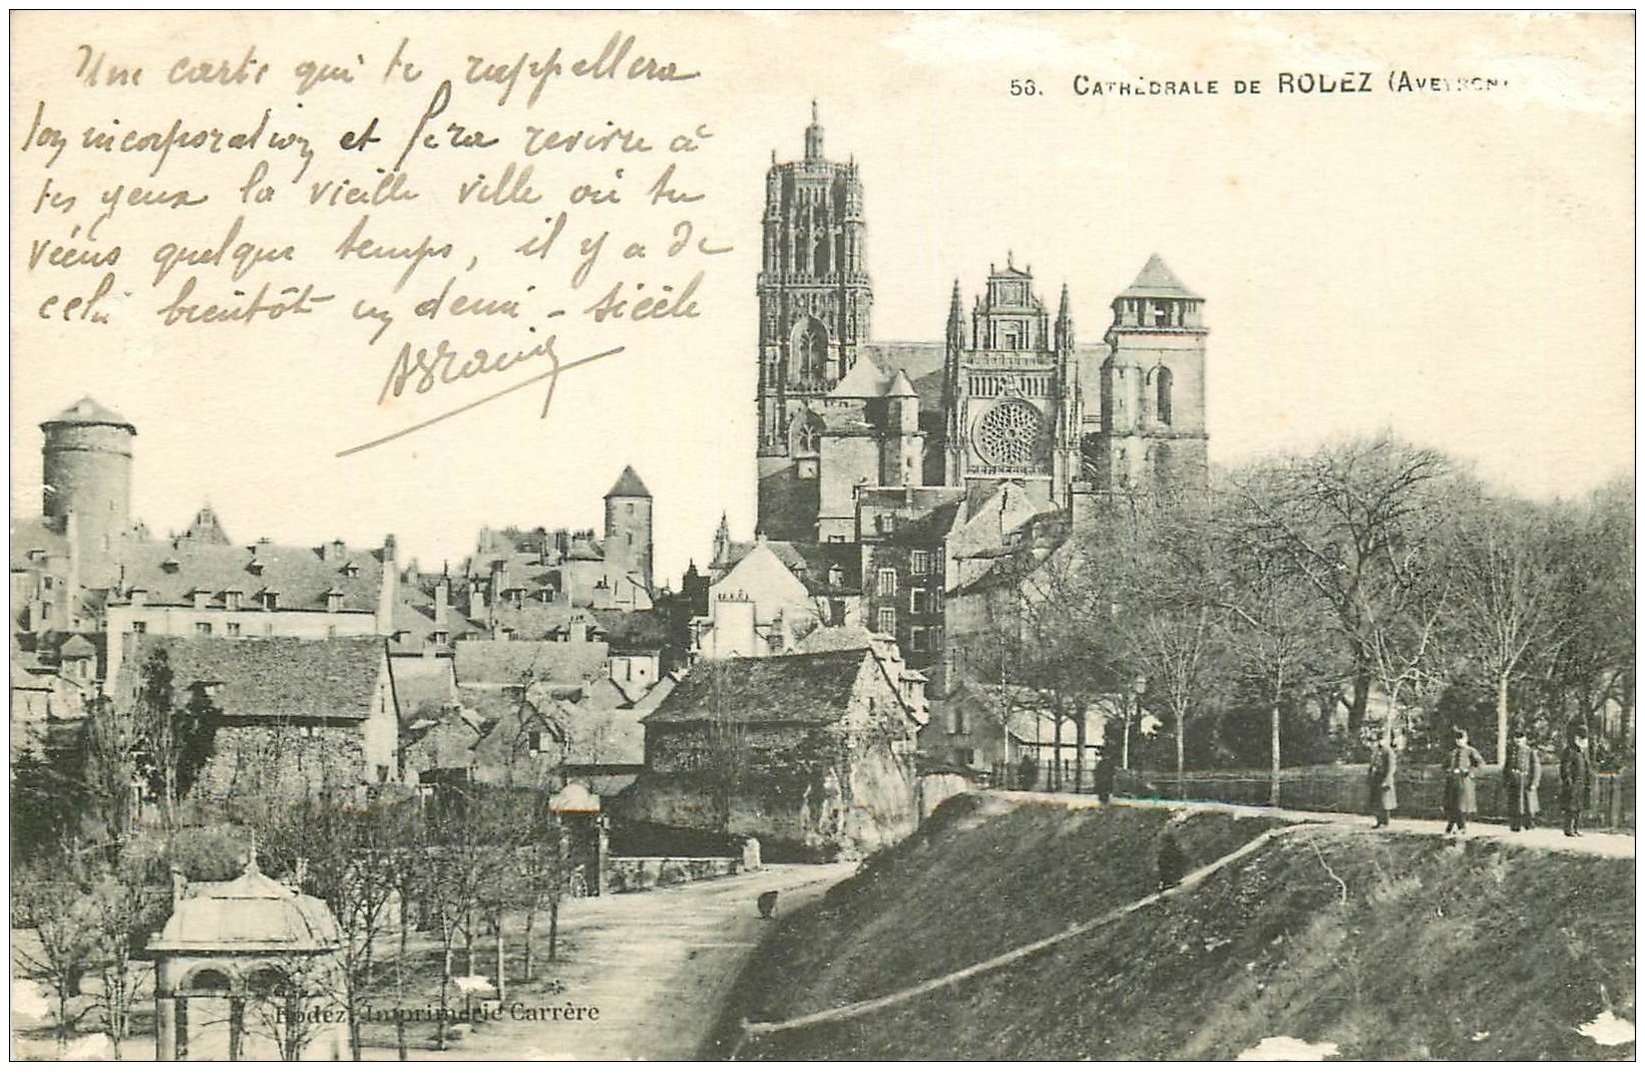 Une carte qui te rappellera
ton incorporation et fera revivre à
tes yeux la vieille ville où tu
vécus quelque temps, il y a de
cela bientôt un demi-siècle
58. CATHÉDRALE DE RODEZ (AVEYRON)
Rodez, Imprimerie Carrère